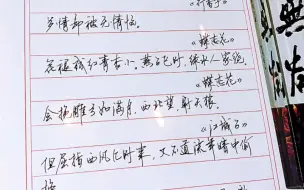 多情却被无情恼。
《蝶恋花》
花褪残红青杏小。燕子飞时，绿水人家绕。
《蝶恋花》
会挽雕弓如满月，西北望，射天狼。
《江城子》
但屈指西风几时来，又不道流年暗中偷
换。